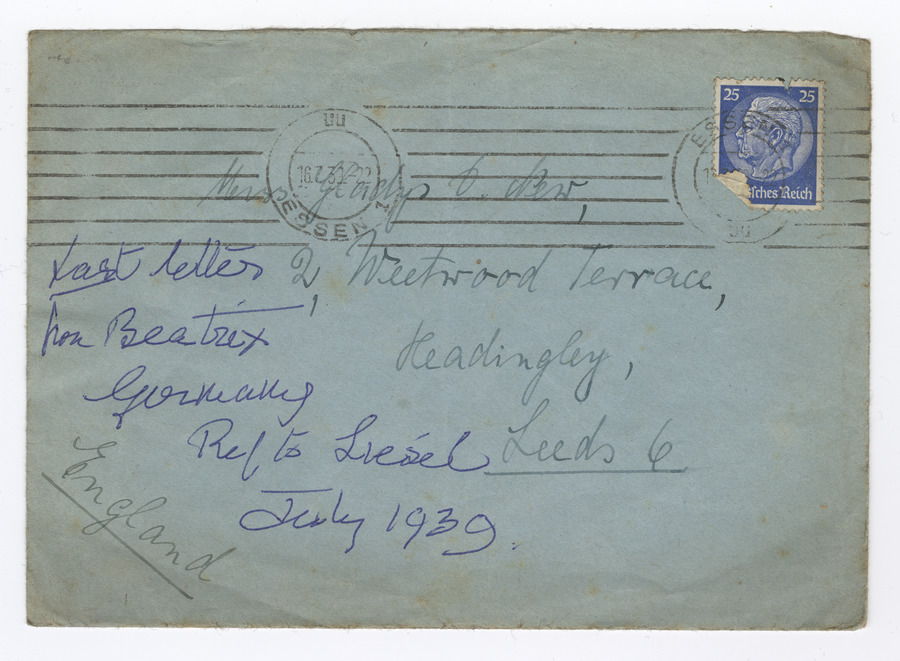 25 25
Deutsches Reich
ESSEN
uu
16.7.39
ESSEN
uu
Miss Gladys
2, Weetwood Terrace,
Headingley,
Leeds 6
England
Last letter
from Beatrix
Germany
Ref to Liesel
July 1939.